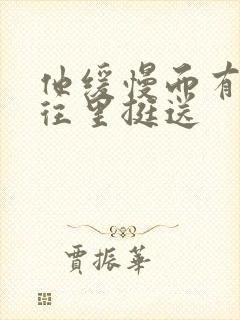 他缓慢而有
往里挺送
贾振华